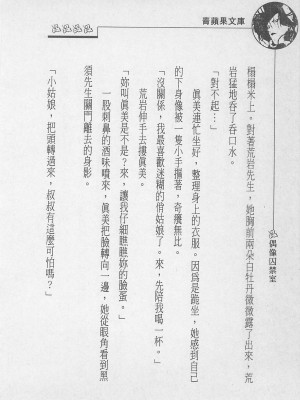 青蘋果文庫
偶像囚禁室
榻榻米上。對著荒岩先生，她胸前兩朵白牡丹微微露了出來，荒
岩猛地吞了吞口水。
「對不起…」
真美連忙坐好，整理身上的衣服。因為是跪坐，她感到自己
的下身像被一隻小手搔著，奇癢無比。
「沒關係，我最喜歡迷糊的俏姑娘了。來，先陪我喝一杯。」
荒岩伸手去摟真美。
「妳叫真美是不是？來，讓我仔細瞧瞧妳的臉蛋。」
一股刺鼻的酒味噴來，真美把臉轉向一邊，她從眼角看到黑
須先生關門離去的身影。
「小姑娘，把頭轉過來，叔叔有這麼可怕嗎？」